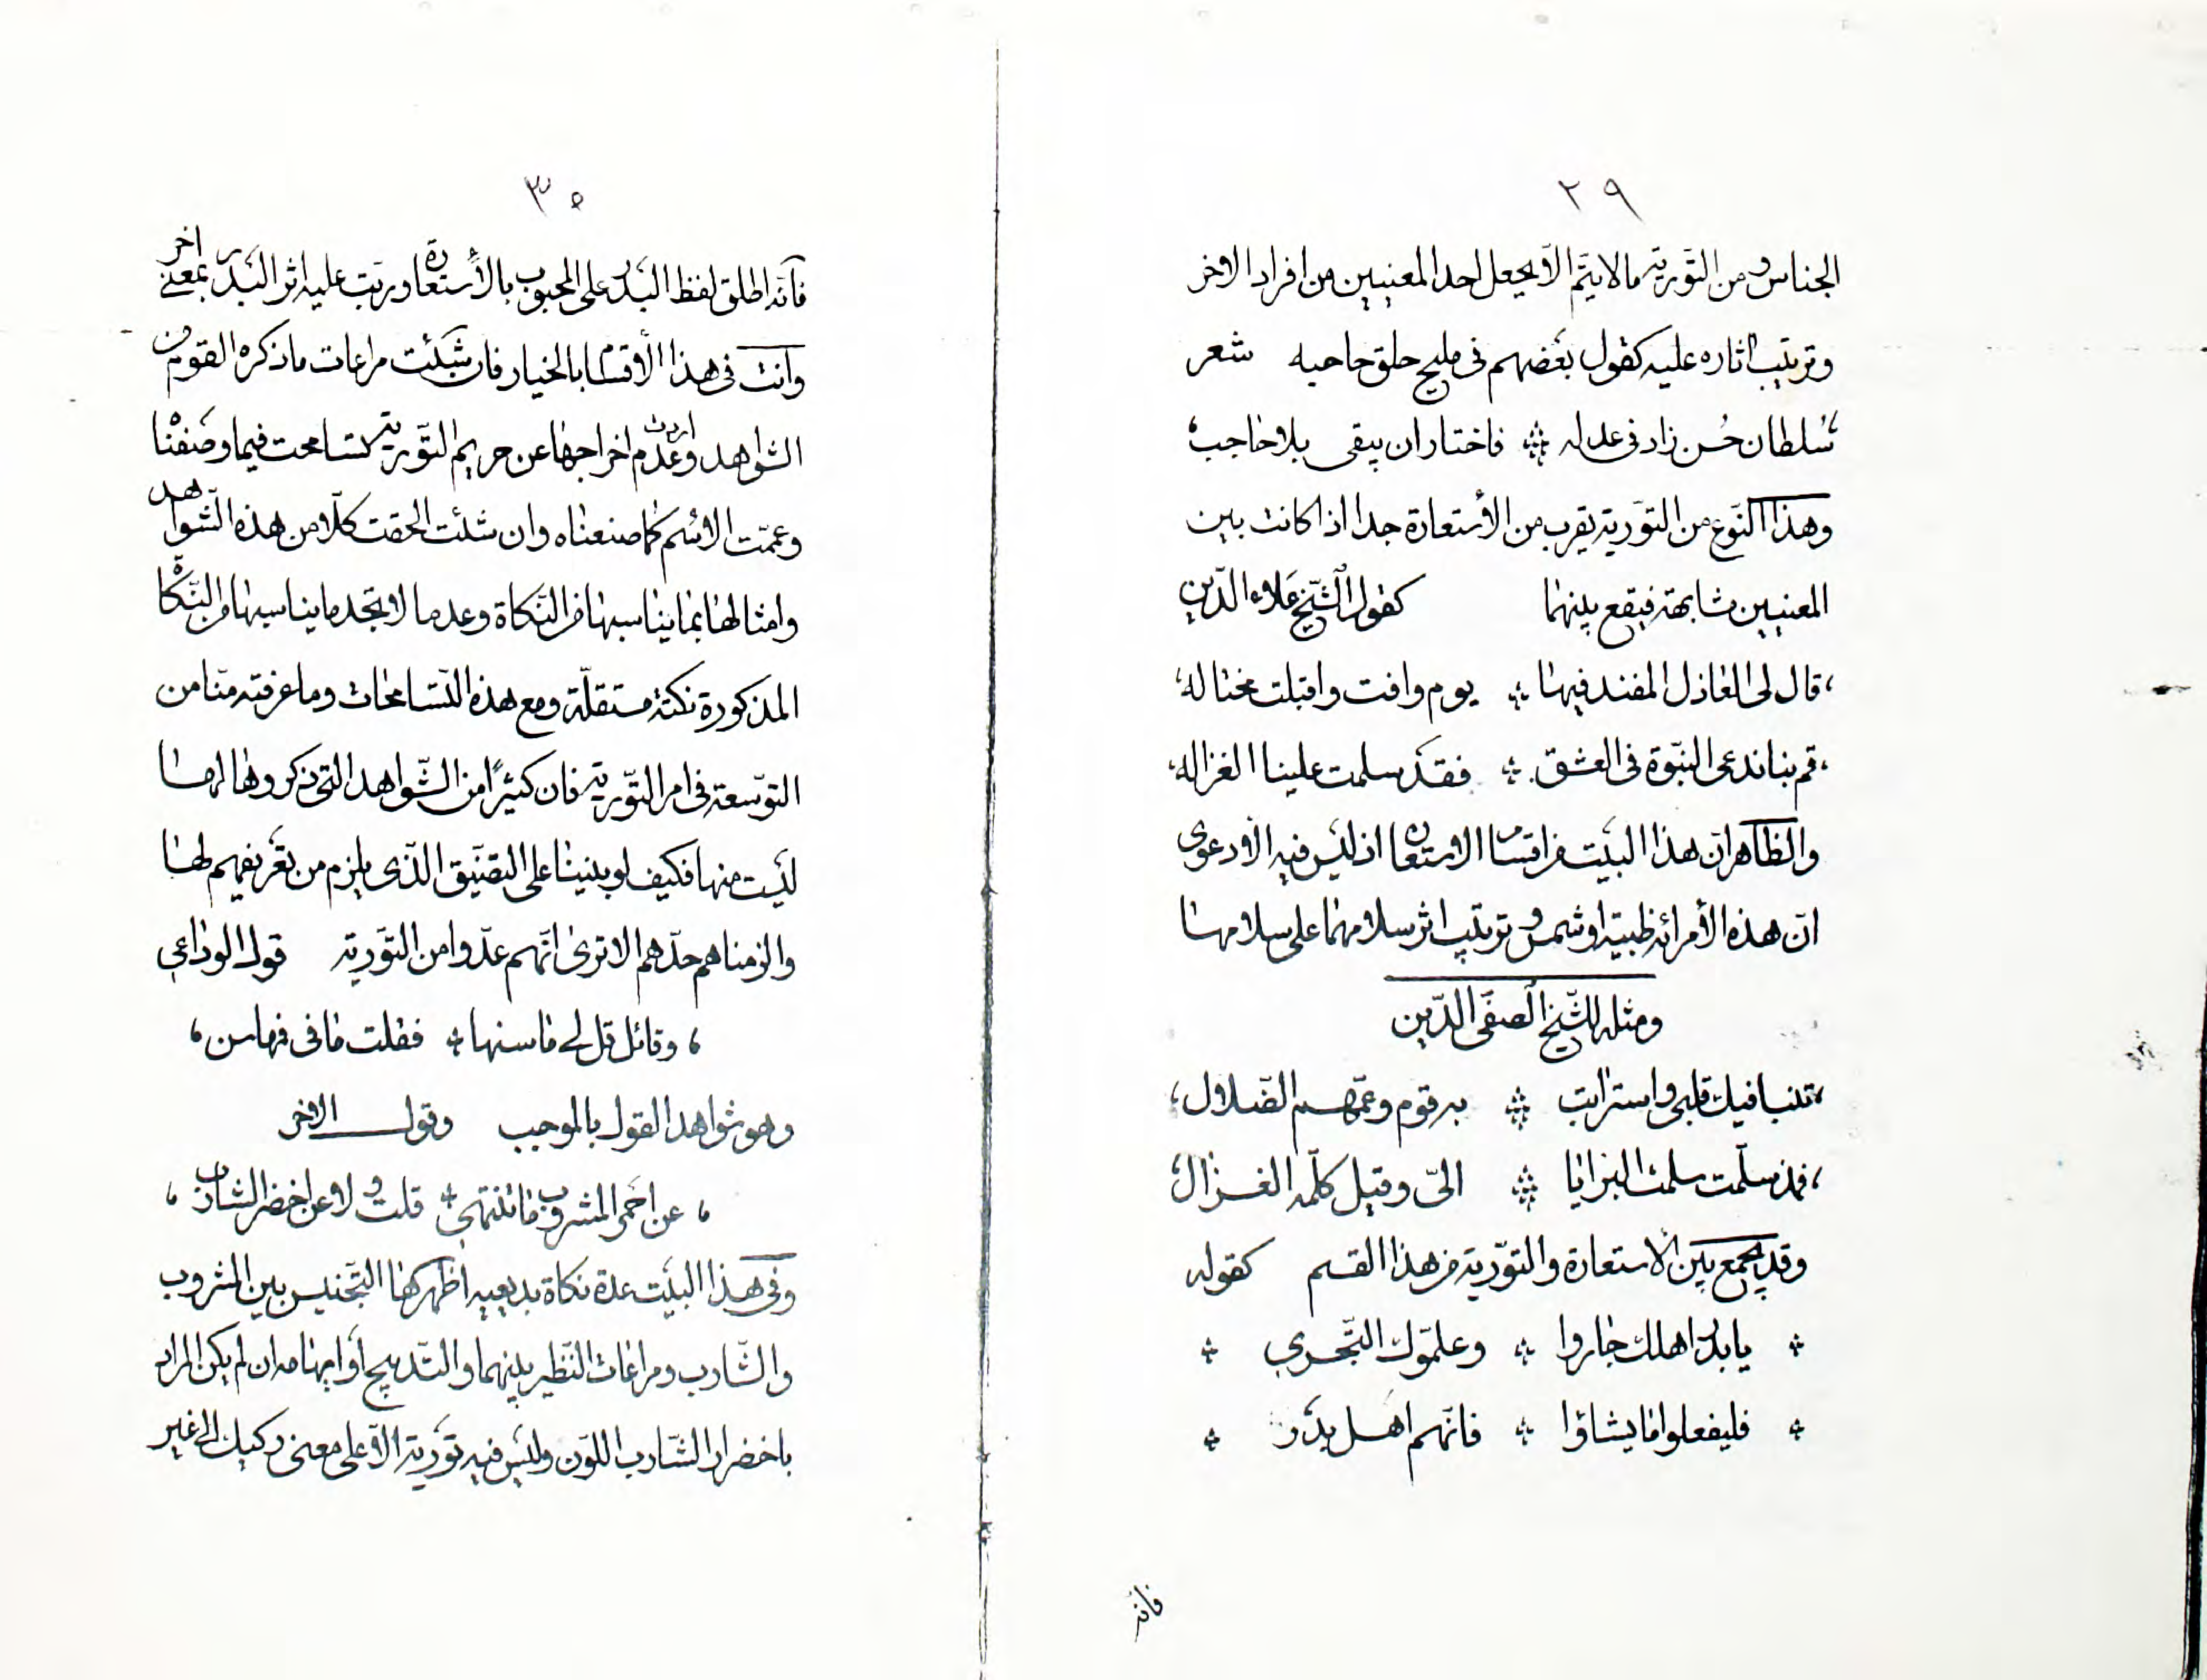 ٢٩
الجناس ومن التورية مالا يتم الا بجعل احد المعنيين من افراد الاخر
وترتيب اثاره عليه كقول بعضهم فى مليح حلق حاجبه شعر
سُلطان حُسن زاد فى عدله فاختار ان يبقى بلا حاجب
وهذا النوع من التورية يقرب من الأستعارة جدا اذا كانت بين
المعنيين مشابهة فيقع بينهما كقول الشيخ علاء الدين
قال لى العاذل المفند فيها يوم وافت واقبلت مختاله
قم بنا ندعى النبّوة فى العشق فقد سلمت علينا الغزاله
والظاهر ان هذا البيت من اقسام الاستعارة اذ ليس فيه الا دعوى
ان هذه الأمرائه ظبية او شمس وترتيب اثر سلامهما على سلامها
ومثله للشيخ الصفى الدين
تنبا فيك قلبى واسترابت به قوم وعمّهم الضلال
فمذ سلّمت سلمت البرايا الىّ وقيل كلّمه الغزال
وقد يجمع بين الاستعارة والتورية من هذا القسم كقوله
يا بدر اهلك جاروا وعلموك التجرى
فليفعلوا ما يشاؤا فانهم اهل بدر
فانه
٣٠
فانه اطلق لفظ البدر على المحبوب بالأستعارة ورتب عليه اثر البدر بمعنى اخر
وانت فى هذا الأقسام بالخيار فان شئت مراعات ما ذكره القوم من
الشواهد وعدم اردت اخراجها عن حريم التورية تسامحت فيما وصفنا
وعممّت الاسم كما صنعناه وان شئت الحقت كلّا من هذه الشواهد
وامثالها بما يناسبها من النكاة وعد ما لا تجد ما يناسبها من النكاة
المذكورة نكتة مستقلّة ومع هذه التسامحات وما عرفته منّا من
التوسعة فى امر التورية فان كثيرًا من الشّواهد التى ذكروها لها
ليست منها فكيف لو بنينا على التضييق الذى يلزم من تعريفهم لها
والزمناهم حدّهم الا ترى انّهم عدّوا من التورية قول الوداعي
وقائل قل لى ما سنها فقلت ما فى فمها سن
وهو شواهد القول بالموجب وقول الاخر
عن احمر المشروب ما تنتهى قلت ولا عن اخضر الشارب
وفى هذا البيت عدة نكاة بديعيه اظهرها التجنيس بين المشروب
والشّارب ومراعات النظير بينهما والتدبيج او ايهامه ان لم يكن المراد
باخضرار الشّارب اللون وليس فيه تورية الّا على معنى ركيك الى غير